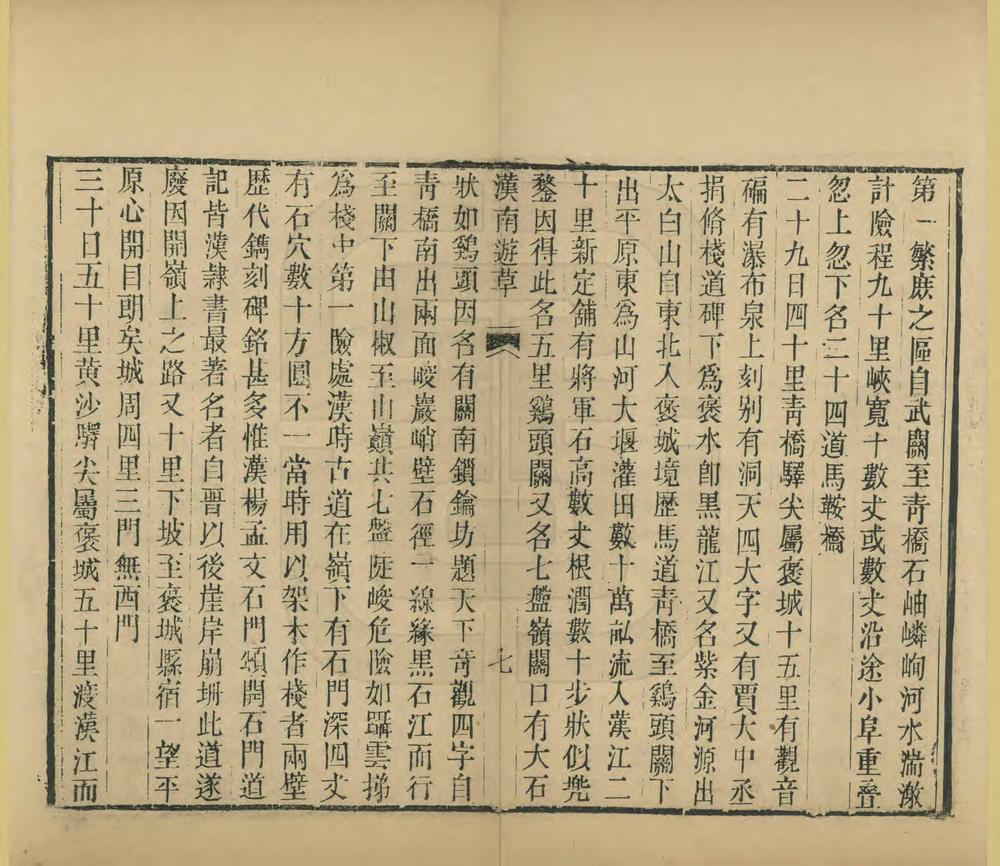 第一繁庶之區自武關至青橋石岫嶙峋河水湍激
計險程九十里峽寬十數丈或數丈沿途小阜重疊
忽上忽下名二十四道馬鞍橋
二十九日四十里青橋驛尖屬褒城十五里有觀音
碥有瀑布泉上刻別有洞天四大字又有賈大中丞
捐脩棧道碑下爲褒水卽黑龍江又名紫金河源出
太白山自東北入褒城境歷馬道青橋至鷄頭關下
出平原東爲山河大堰灌田數十萬畆流入漢江二
十里新定舖有將軍石高數丈根濶數十步狀似兠
鍪因得此名五里鷄頭關又名七盤嶺關口有大石
漢南遊草
七
狀如鷄頭因名有關南鎖鑰坊題天下奇觀四字自
青橋南出兩面峻巖峭壁石徑一線緣黑石江而行
至關下由山椒至山巔共七盤陡峻危險如躡雲梯
爲棧中第一險處漢時古道在嶺下有石門深四丈
有石穴數十方圓不一當時用以架木作棧者兩壁
歷代鐫刻碑銘甚多惟漢楊孟文石門頌開石門道
記皆漢隷書最著名者自晋以後崖岸崩坍此道遂
廢因開嶺上之路又十里下坡至褒城縣宿一望平
原心開目朗矣城周四里三門無西門
三十日五十里黃沙驛尖屬褒城五十里渡漢江而